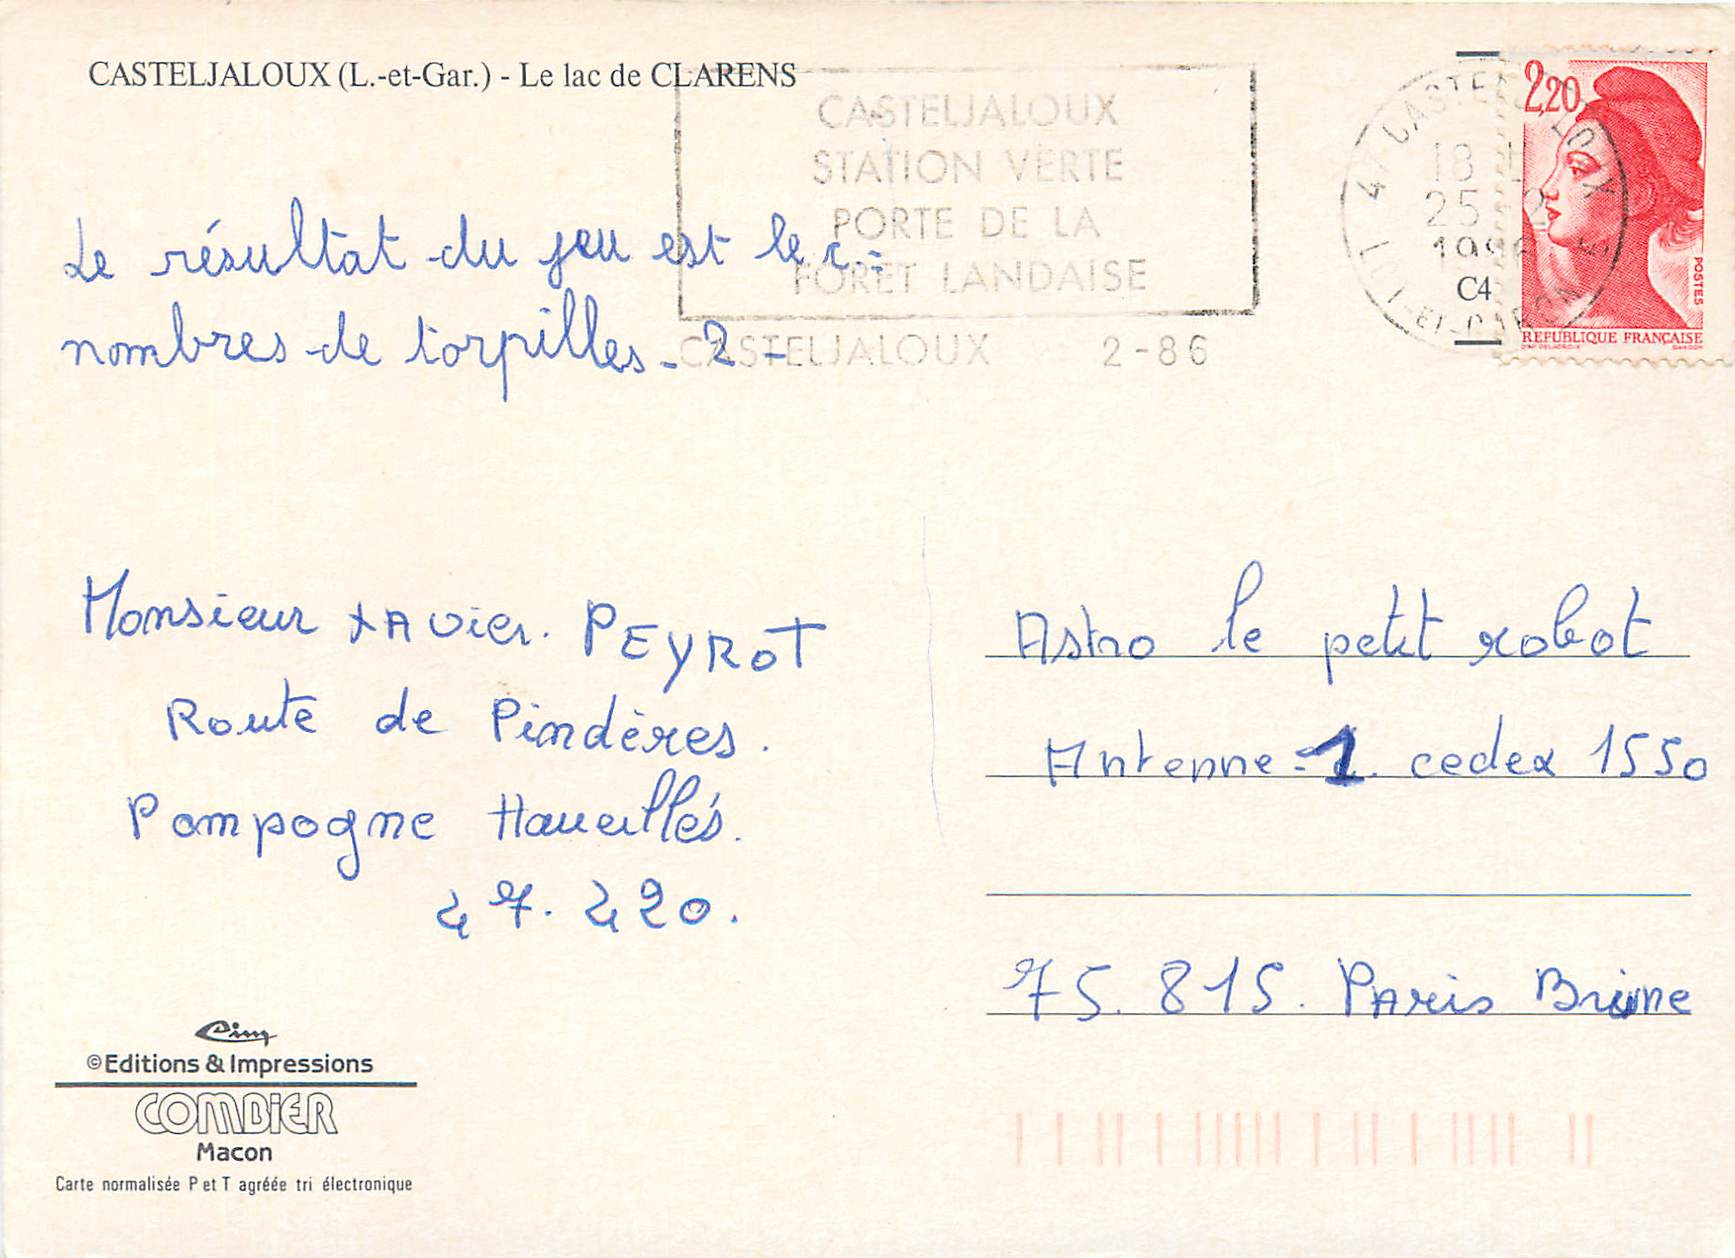 CASTELJALOUX (L.-et-Gar.) - Le lac de CLARENS
CASTELJALOUX
STATION VERTE
PORTE DE LA
FORET LANDAISE
CASTELJALOUX 2-86
47 CASTELJALOUX
LOT-ET-GARONNE
18 H
25
1986
C4
2,20
POSTES
REPUBLIQUE FRANÇAISE
Le résultat du jeu est le
nombres de torpilles - 2 -
Monsieur XAvier. PEYROT
Route de Pindères.
Pompogne Haueillés.
47. 420.
Astro le petit robot
Antenne - 1. cedex 1550
75. 815. PAris Brune
Cim
©Editions & Impressions
COMBIER
Macon
Carte normalisée P et T agréée tri électronique